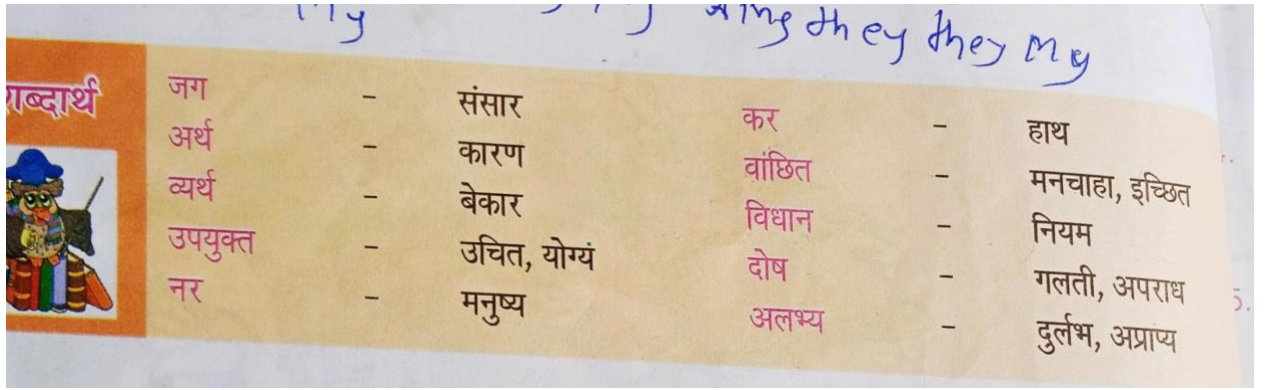 My they they My
शब्दार्थ
जग - संसार
अर्थ - कारण
व्यर्थ - बेकार
उपयुक्त - उचित, योग्यं
नर - मनुष्य
कर - हाथ
वांछित - मनचाहा, इच्छित
विधान - नियम
दोष - गलती, अपराध
अलभ्य - दुर्लभ, अप्राप्य
5.